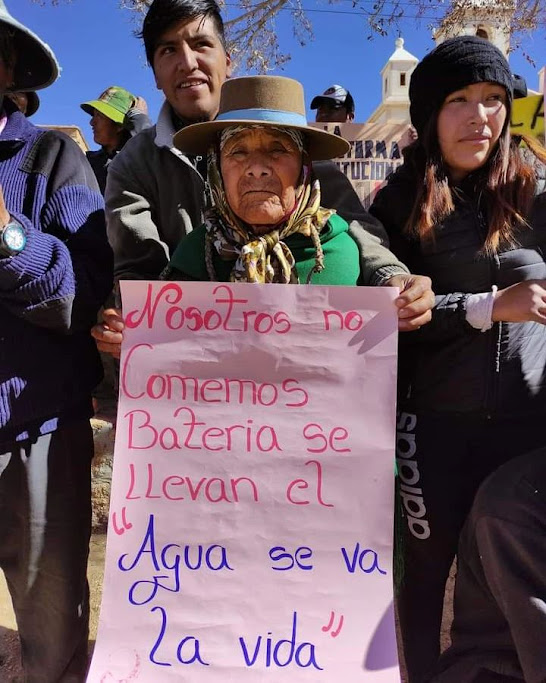 Nosotros no
Comemos
Bateria se
Llevan el
"Agua se va
La vida"
adidas